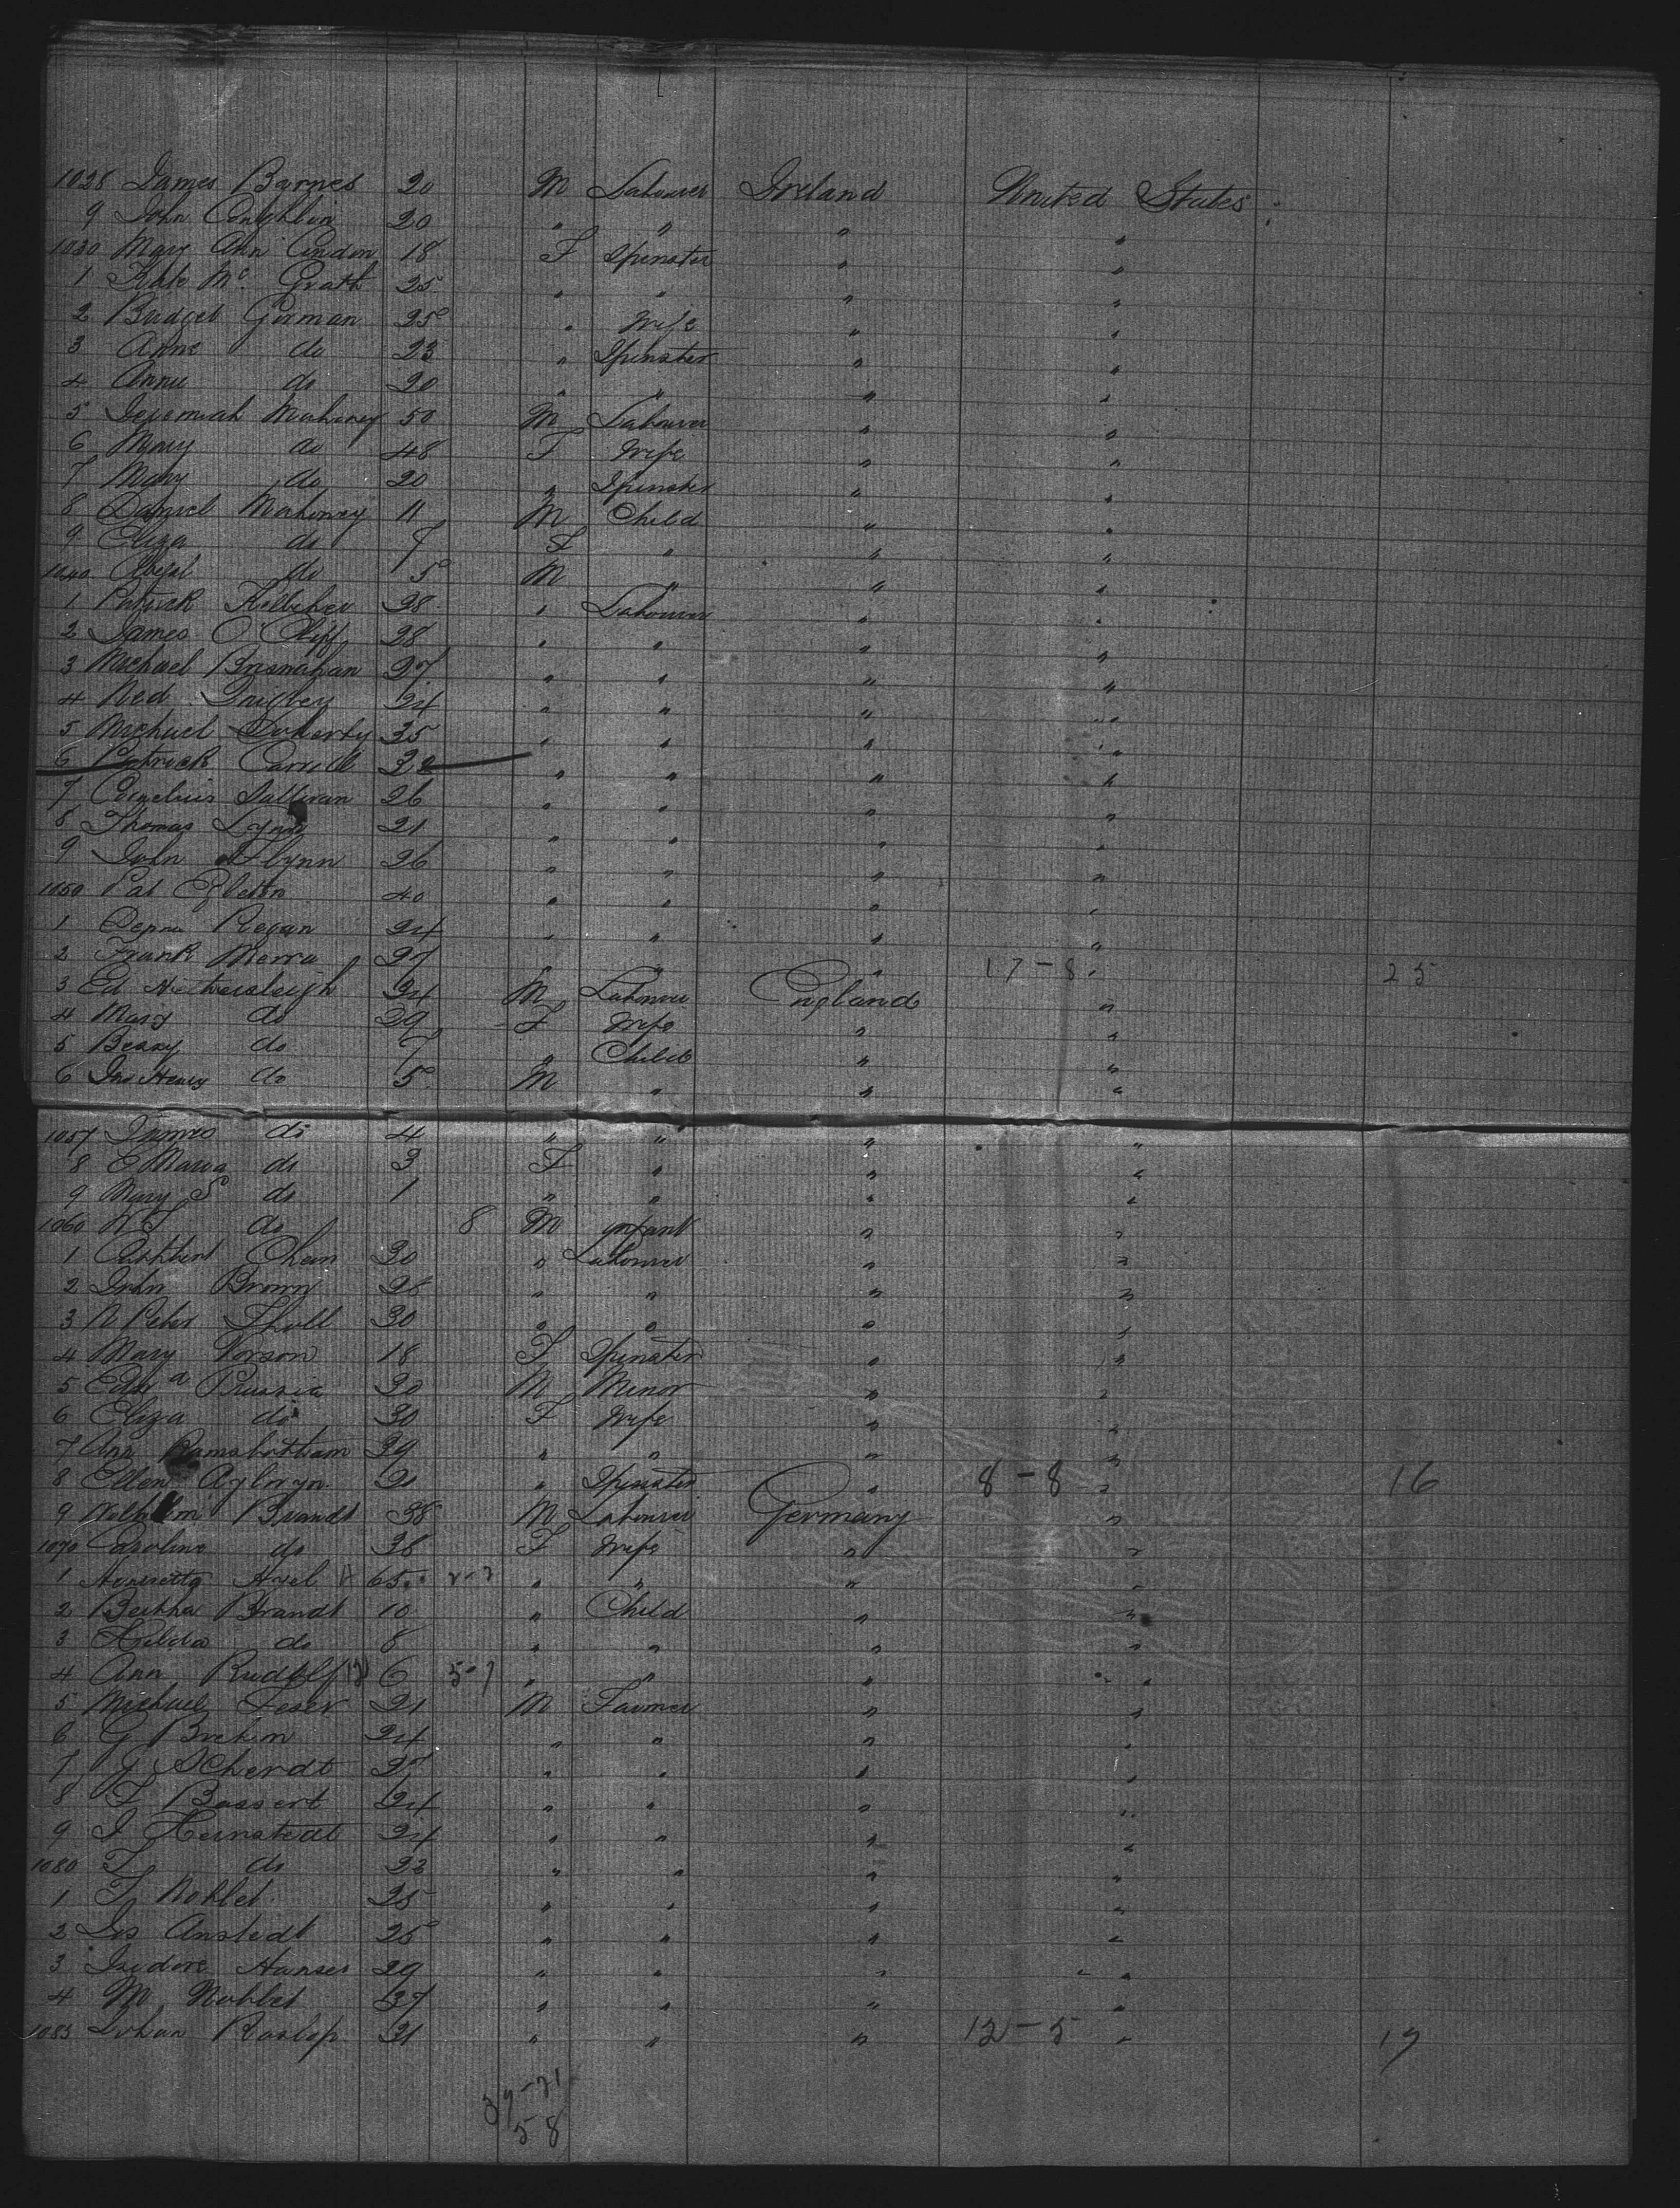 1028 James Barnes 20 M Labourer Ireland United States
9 John Coughlin 20 " " " "
1030 Mary Ann Condon 18 F Spinster " "
1 Kate Mc Grath 25 " " " "
2 Bridget Gorman 25 " Wife " "
3 Anne do 23 " Spinster " "
4 Annie do 20 " " " "
5 Jeremiah Mahoney 50 M Labourer " "
6 Mary do 48 F Wife " "
7 Mary do 20 " Spinster " "
8 Daniel Mahoney 11 M Child " "
9 Eliza do 7 F " " "
1040 do 5 M " " "
1 Patrick Kelliher 28 " Labourer " "
2 James O' 28 " " " "
3 Michael Brisnahan 27 " " " "
4 Ned 24 " " " "
5 Michael Doherty 35 " " " "
6 Patrick Carroll 32 " " " "
7 Cornelius Sullivan 26 " " " "
8 Thomas Lynn 21 " " " "
9 John Flynn 26 " " " "
1050 Pat 40 " " " "
1 Regan 24 " " " "
2 Frank Merra 27 " " 17-8 " 25
3 Ed 34 M Labourer England "
4 Mary do 29 F Wife " "
5 do 7 " Child " "
6 Jno Henry do 5 M " " "
1057 James do 4 " " " "
8 E Maria do 3 F " " "
9 Mary S do 1 " " " "
1060 do 8 M infant " "
1 Cuthbert 30 " Labourer " "
2 John Brown 26 " " " "
3 N Peter 30 " " " "
4 Mary 18 F Spinster " "
5 Edwd Prussia 30 M Minor " "
6 Eliza do 30 F Wife " "
7 Ann Ramsbottham 39 " " " "
8 Ellen 21 " Spinster " 8-8 " 16
9 Brandt 38 M Labourer Germany "
1070 Caroline do 38 F Wife " "
1 65 " " " "
2 Bertha Brandt 10 " Child " "
3 Hilda do 8 " " " "
4 Ann Rudolf 6 " " " "
5 Michael Feser 21 M Farmer " "
6 G 24 " " " "
7 J Scherdt 27 " " " "
8 F Bassert 24 " " " "
9 J Heinstedt 24 " " " "
1080 F do 23 " " " "
1 F Nohlet 25 " " " "
2 Anstedt 25 " " " "
3 Isidore Hanser 29 " " " "
4 M Nohlet 37 " " " "
1085 Johan 31 " " " 12-5 " 17
37-21
58